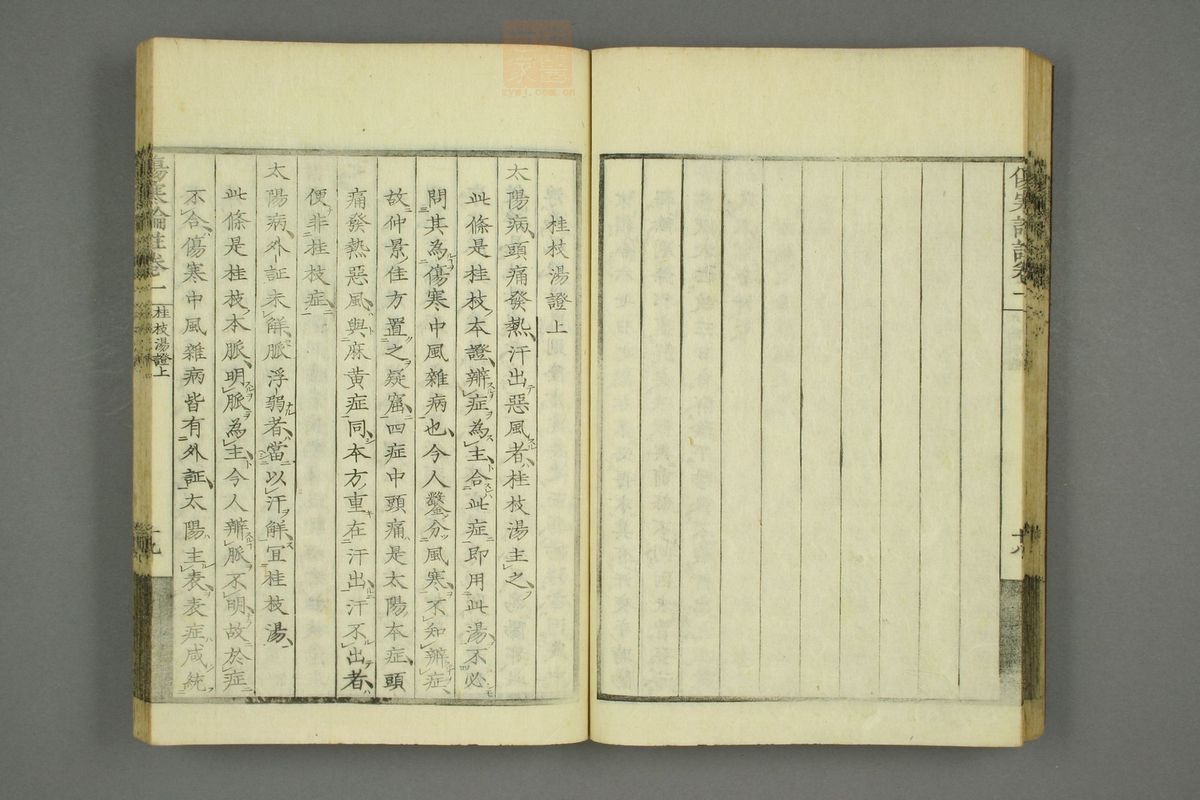 傷寒論註卷一
十八
桂枝湯證上
太陽病、頭痛發熱、汗出惡風者、桂枝湯主之、
此條是桂枝本證、辨症為主、合此症即用此湯、不必
問其為傷寒中風雜病也、今人鑿分風寒、不知辨症、
故仲景佳方置之疑窟、四症中頭痛是太陽本症、頭
痛發熱惡風、與麻黄症同、本方重在汗出、汗不出者、
便非桂枝症、
太陽病、外証未解、脈浮弱者、當以汗解、宜桂枝湯、
此條是桂枝本脈、明脈為主、今人辨脈不明、故於症
不合、傷寒中風雜病皆有外証、太陽主表、表症咸統
傷寒論註卷一
桂枝湯證上
十九
zywj.com.cn